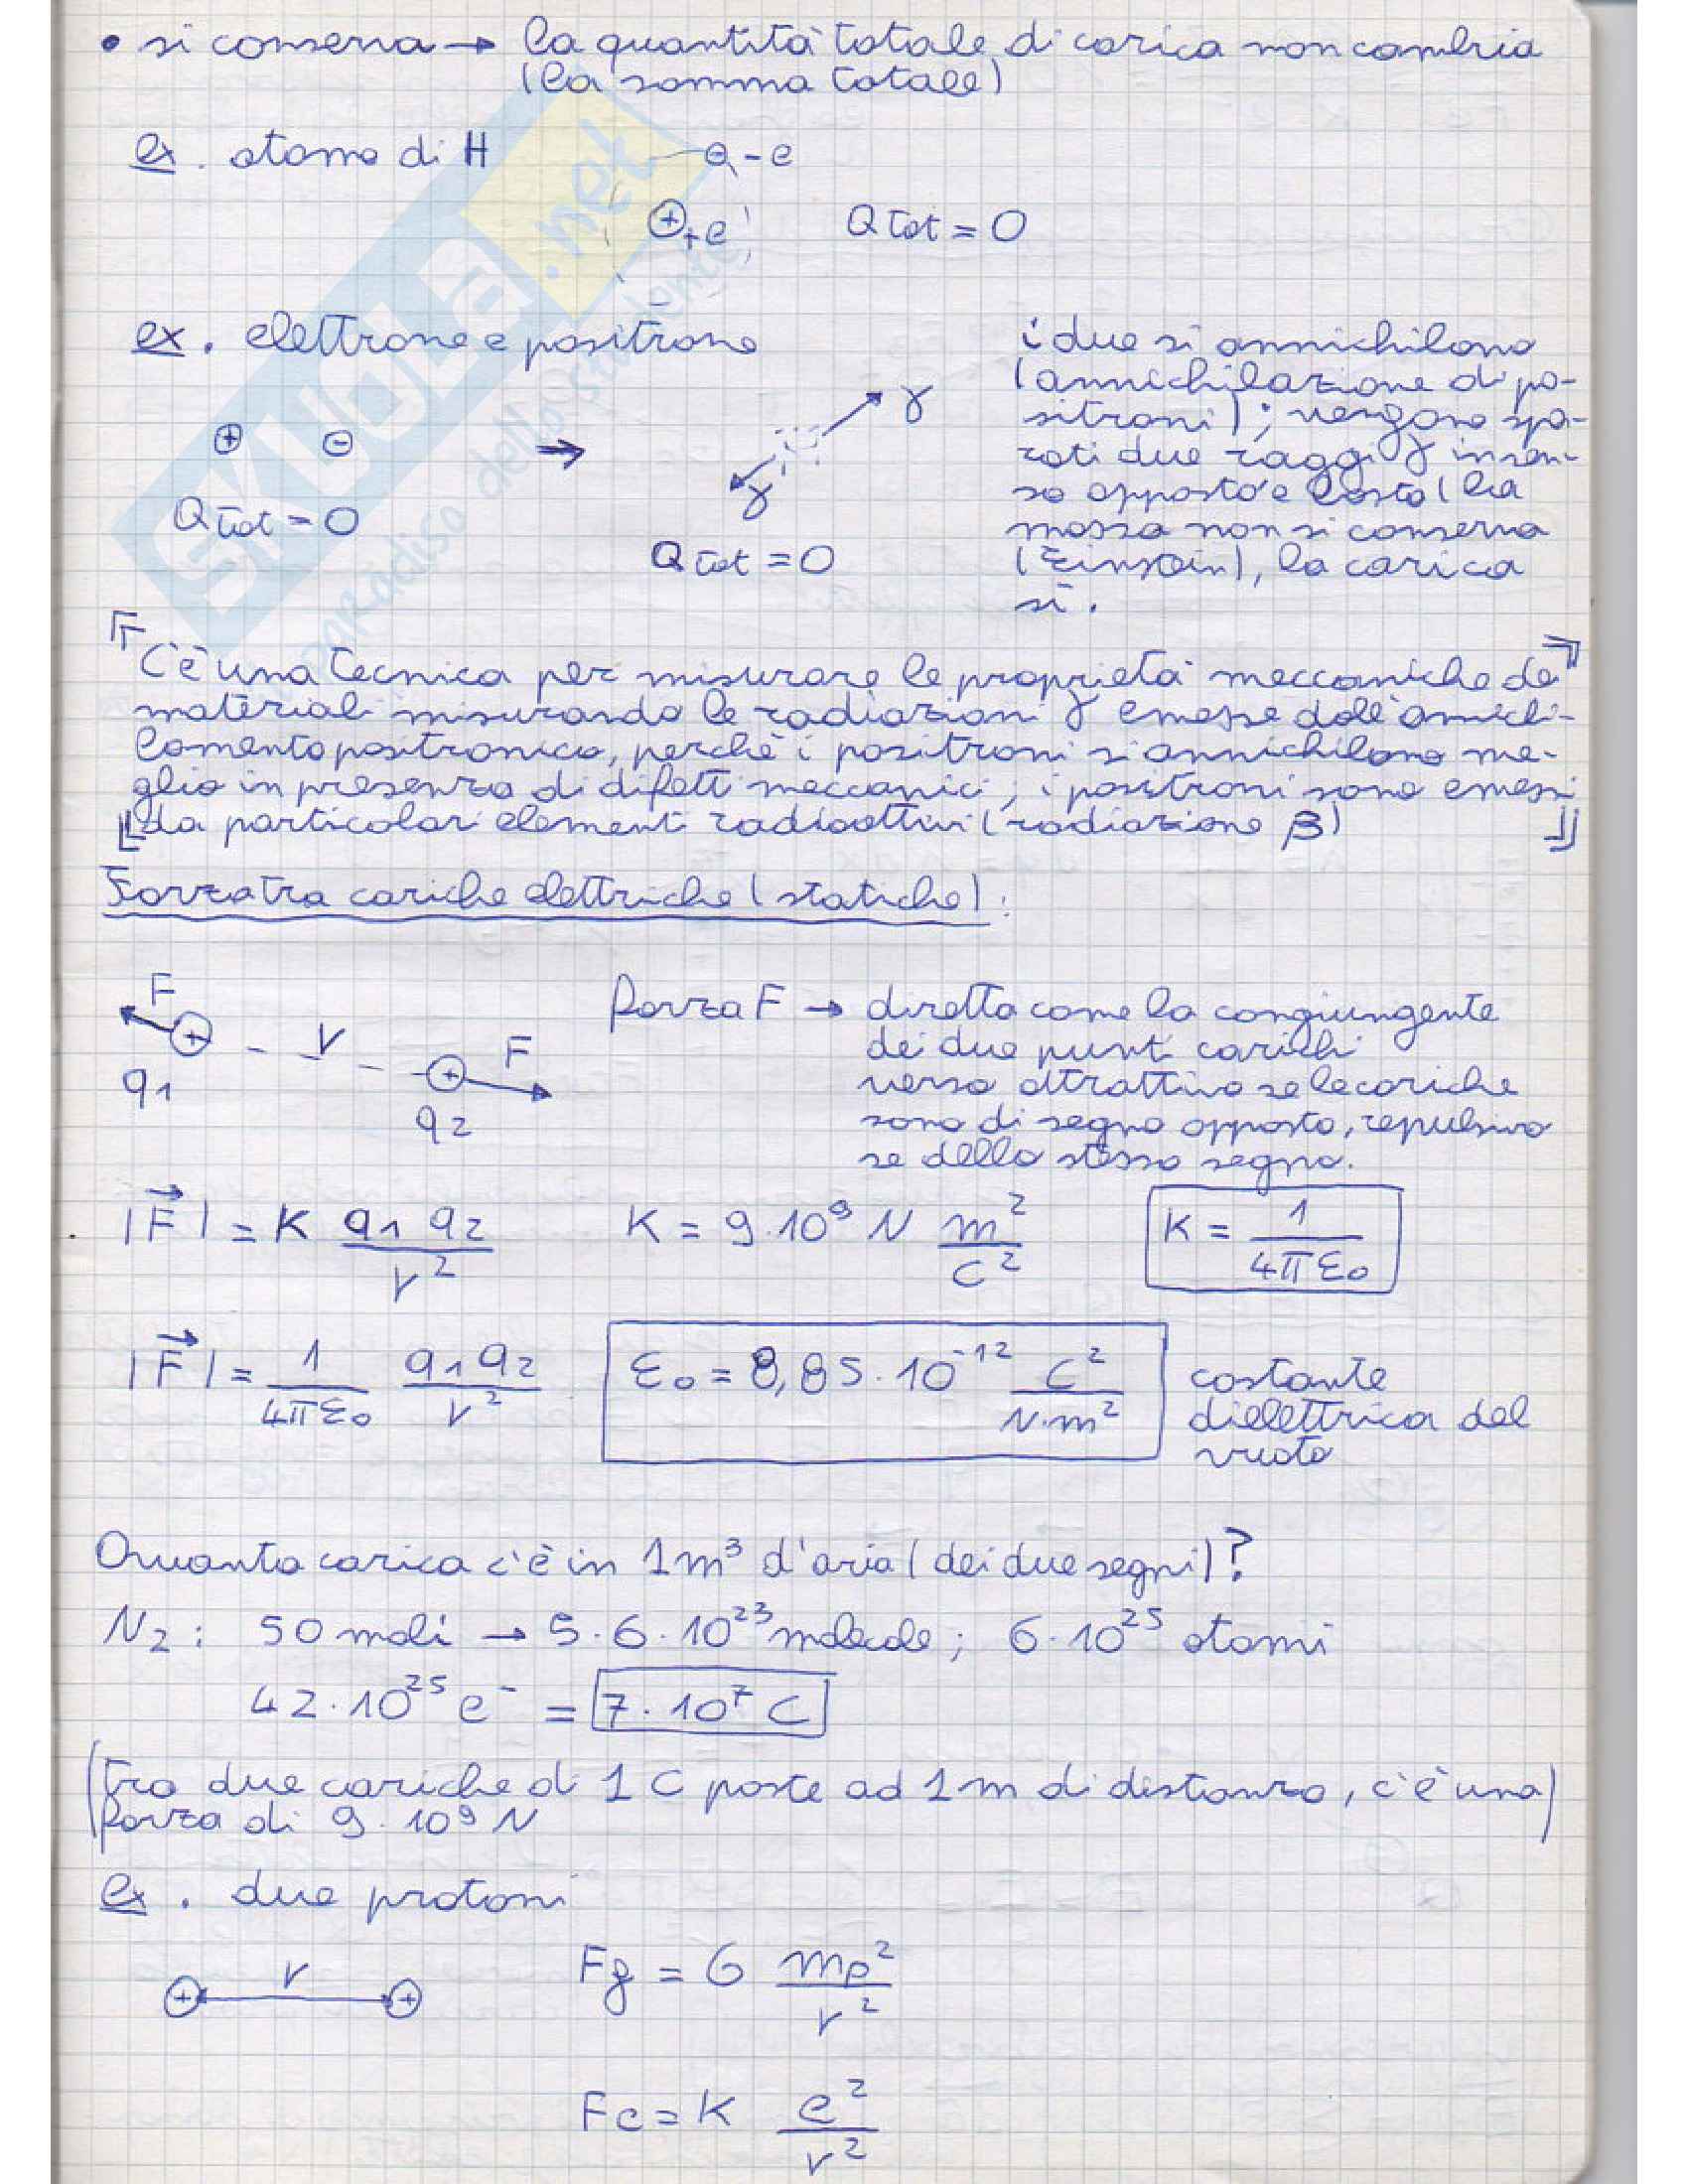 • si conserva → la quantità totale di carica non cambia
(la somma totale)
ex. atomo di H
⊖ -e
⊕ +e
Q tot = 0
ex. elettrone e positrone
⊕ ⊖
Q tot = 0
→
γ
γ
Q tot = 0
i due si annichilono
(annichilazione di po-
sitroni); vengono spa-
rati due raggi γ in sen-
so opposto e basta (la
massa non si conserva
(Einstein), la carica
sì.
C'è una tecnica per misurare le proprietà meccaniche de
materiali misurando le radiazioni γ emesse dall'annichi-
lamento positronico, perchè i positroni si annichilano me-
glio in presenza di difetti meccanici; i positroni sono emessi
da particolari elementi radioattivi (radiazione β)
Forza tra cariche elettriche (statiche):
F
⊕ r
⊕ F
q1
q2
forza F → diretta come la congiungente
dei due punti carichi
verso attrattivo se le cariche
sono di segno opposto, repulsivo
se dello stesso segno.
|F⃗| = K q1 q2 / r²
K = 9·10⁹ N m²/C²
K = 1/4πε₀
|F⃗| = 1/4πε₀ q1q2/r²
ε₀ = 8,85·10⁻¹² C²/N·m²
costante
dielettrica del
vuoto
Quanta carica c'è in 1m³ d'aria (dei due segni)?
N2: 50 moli → 5·6·10²³ molecole; 6·10²⁵ atomi
42·10²⁵ e⁻ = 7·10⁷ C
(Tra due cariche di 1 C poste ad 1 m di distanza, c'è una)
forza di 9·10⁹ N
ex. due protoni
⊕ r ⊕
Fg = G mp²/r²
Fe = K e²/r²
SKUOLA.net
il paradiso dello studente